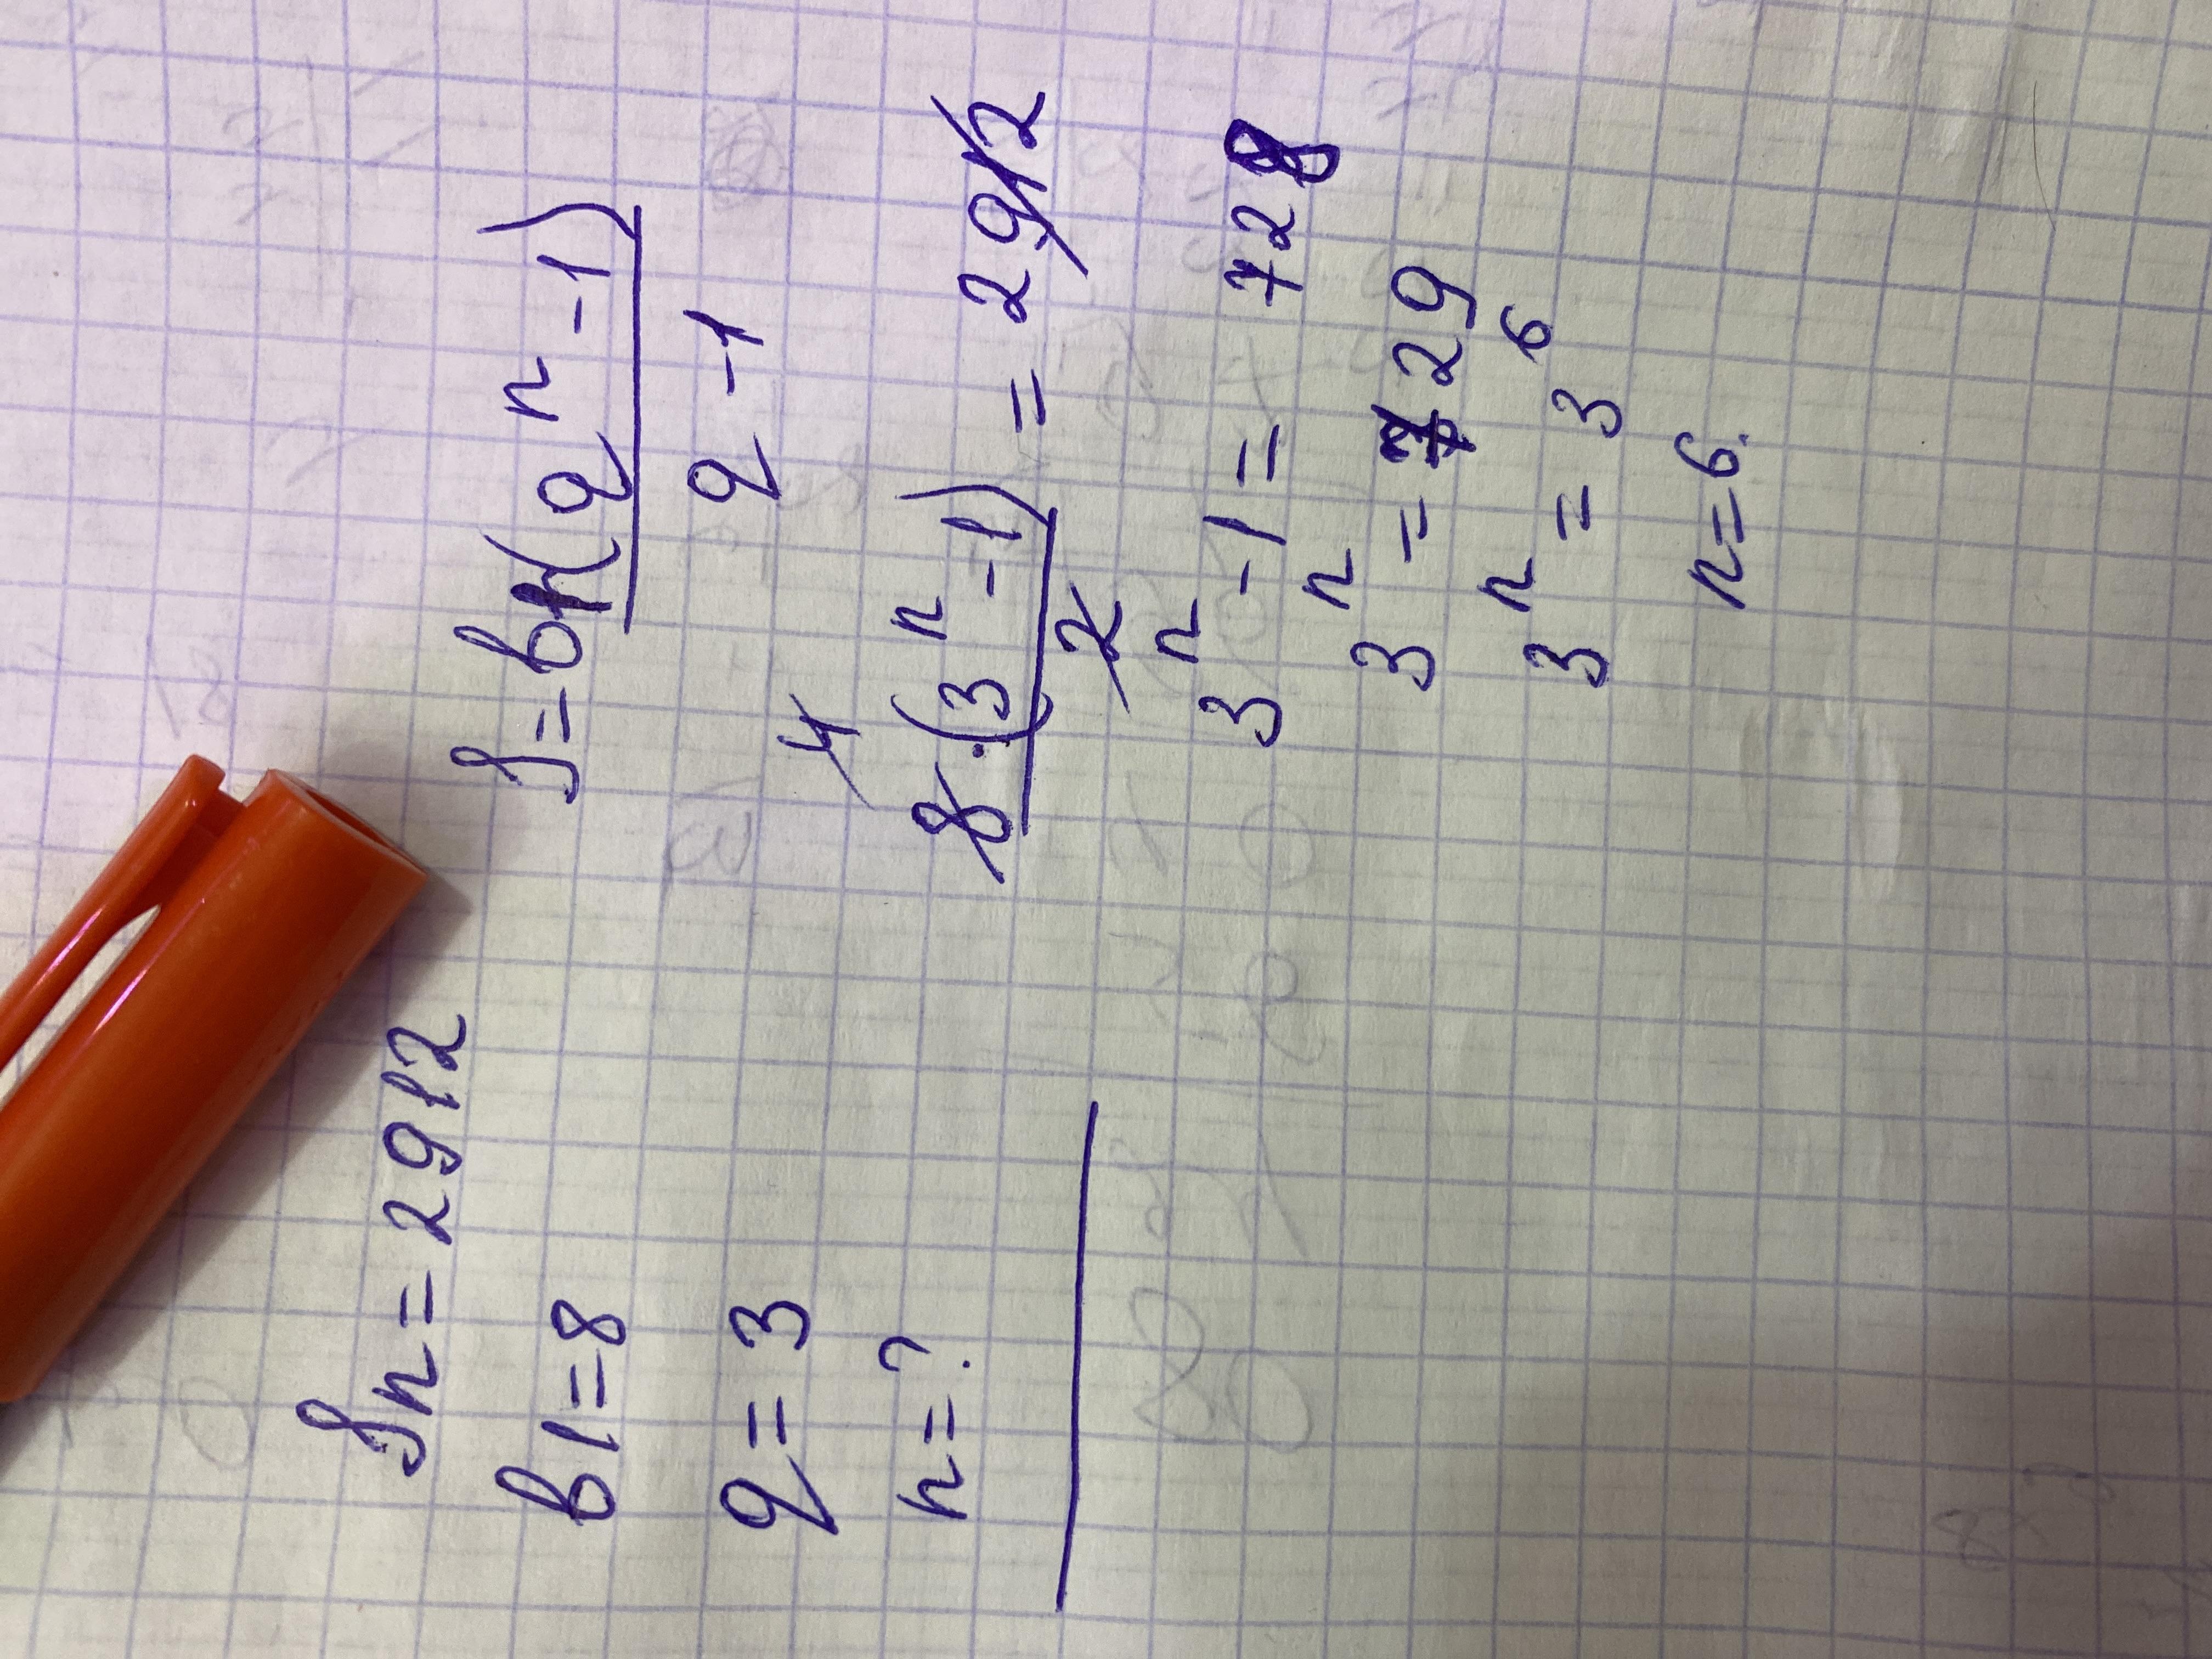 Sn = 2912
b1 = 8
q = 3
n = ?
S = b1(q^n - 1)
q - 1
4
8·(3^n - 1) = 2912
2
3^n - 1 = 728
3^n = 729
3^n = 3^6
n = 6.